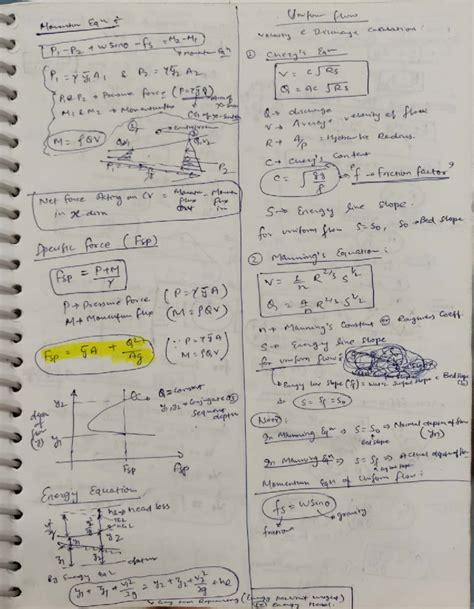 Momentum Eqn :
P₁-P₂ + W sinθ - fs = M₂-M₁
P₁ = γ ȳ₁A₁ & P₂ = γ ȳ₂ A₂
P₁ & P₂ → Pressure force (P = γ ȳ A)
M₁ & M₂ → Momentum
M = ρQV
Net force acting on CV = Momentum flux out - Momentum flux in
in x dirn
Specific force (Fsp)
Fsp = P+M/γ
P → Pressure force (P = γ ȳ A)
M → Momentum flux (M = ρQV)
Fsp = ȳA + Q²/Ag
(∵ P = γ ȳ A
M = ρQV)
Q = constant
y₁, y₂ → Conjugate or
sequent depth
depth of flow (y)
y₂
y₁
Fsp
Fsp
Energy Equation
hL → head loss
TEL
HGL
datum
By Energy eqn
y₁ + z₁ + v₁²/2g = y₂ + z₂ + v₂²/2g + hL
Uniform flow
Velocity & Discharge calculation :
① Chezy's Eqn
V = C √RS
Q = AC √RS
Q → discharge
V → Average velocity of flow
R → A/P → Hydraulic Radius.
C → Chezy's Constant
C = √8g/f
f → Friction factor
S → Energy line slope.
for uniform flow S = So, So → Bed slope
② Manning's Equation :
V = 1/n R^2/3 S^1/2
Q = A/n R^2/3 S^1/2
n → Manning's Constant or Rugosity Coeff.
S → Energy line slope
for uniform flow :
S = Sf = So
Note :
In Manning Eqn ⇒ S = So → Normal depth of flow
(yn)
In Manning Eqn ⇒ S = Sf → Actual depth of flow
Momentum Eqn of Uniform flow :
fs = W sinθ
friction
gravity